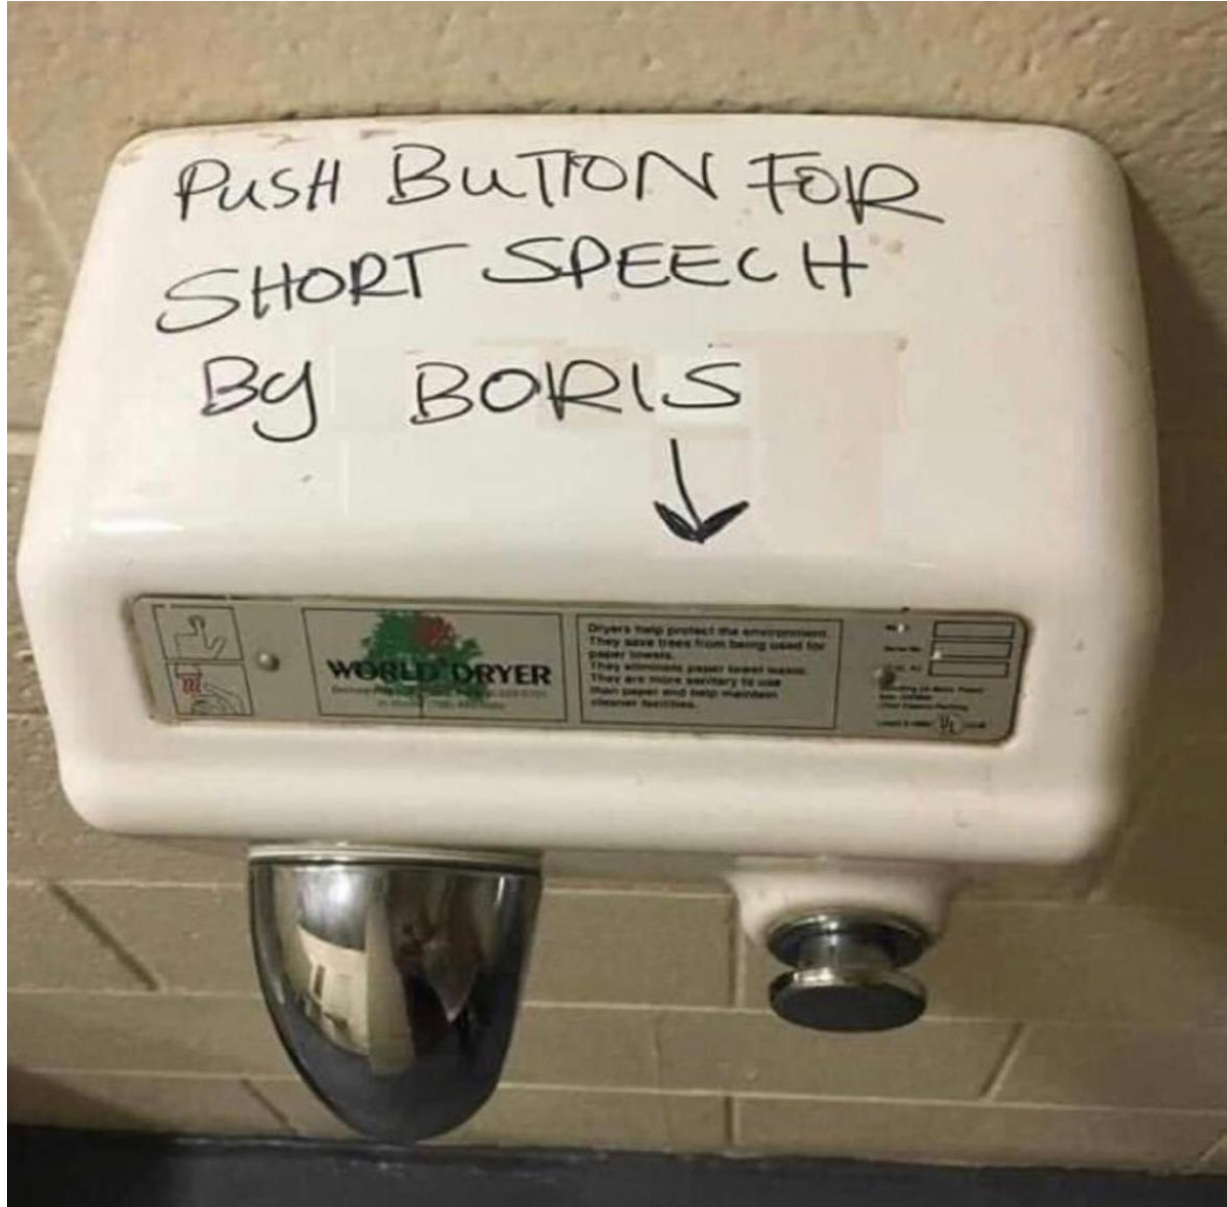 PUSH BUTTON FOR
SHORT SPEECH
By BORIS
WORLD DRYER
Dryers help protect the environment.
They save trees from being used for
paper towels.
They eliminate paper towel waste.
They are more sanitary to use
than paper and help maintain
cleaner facilities.